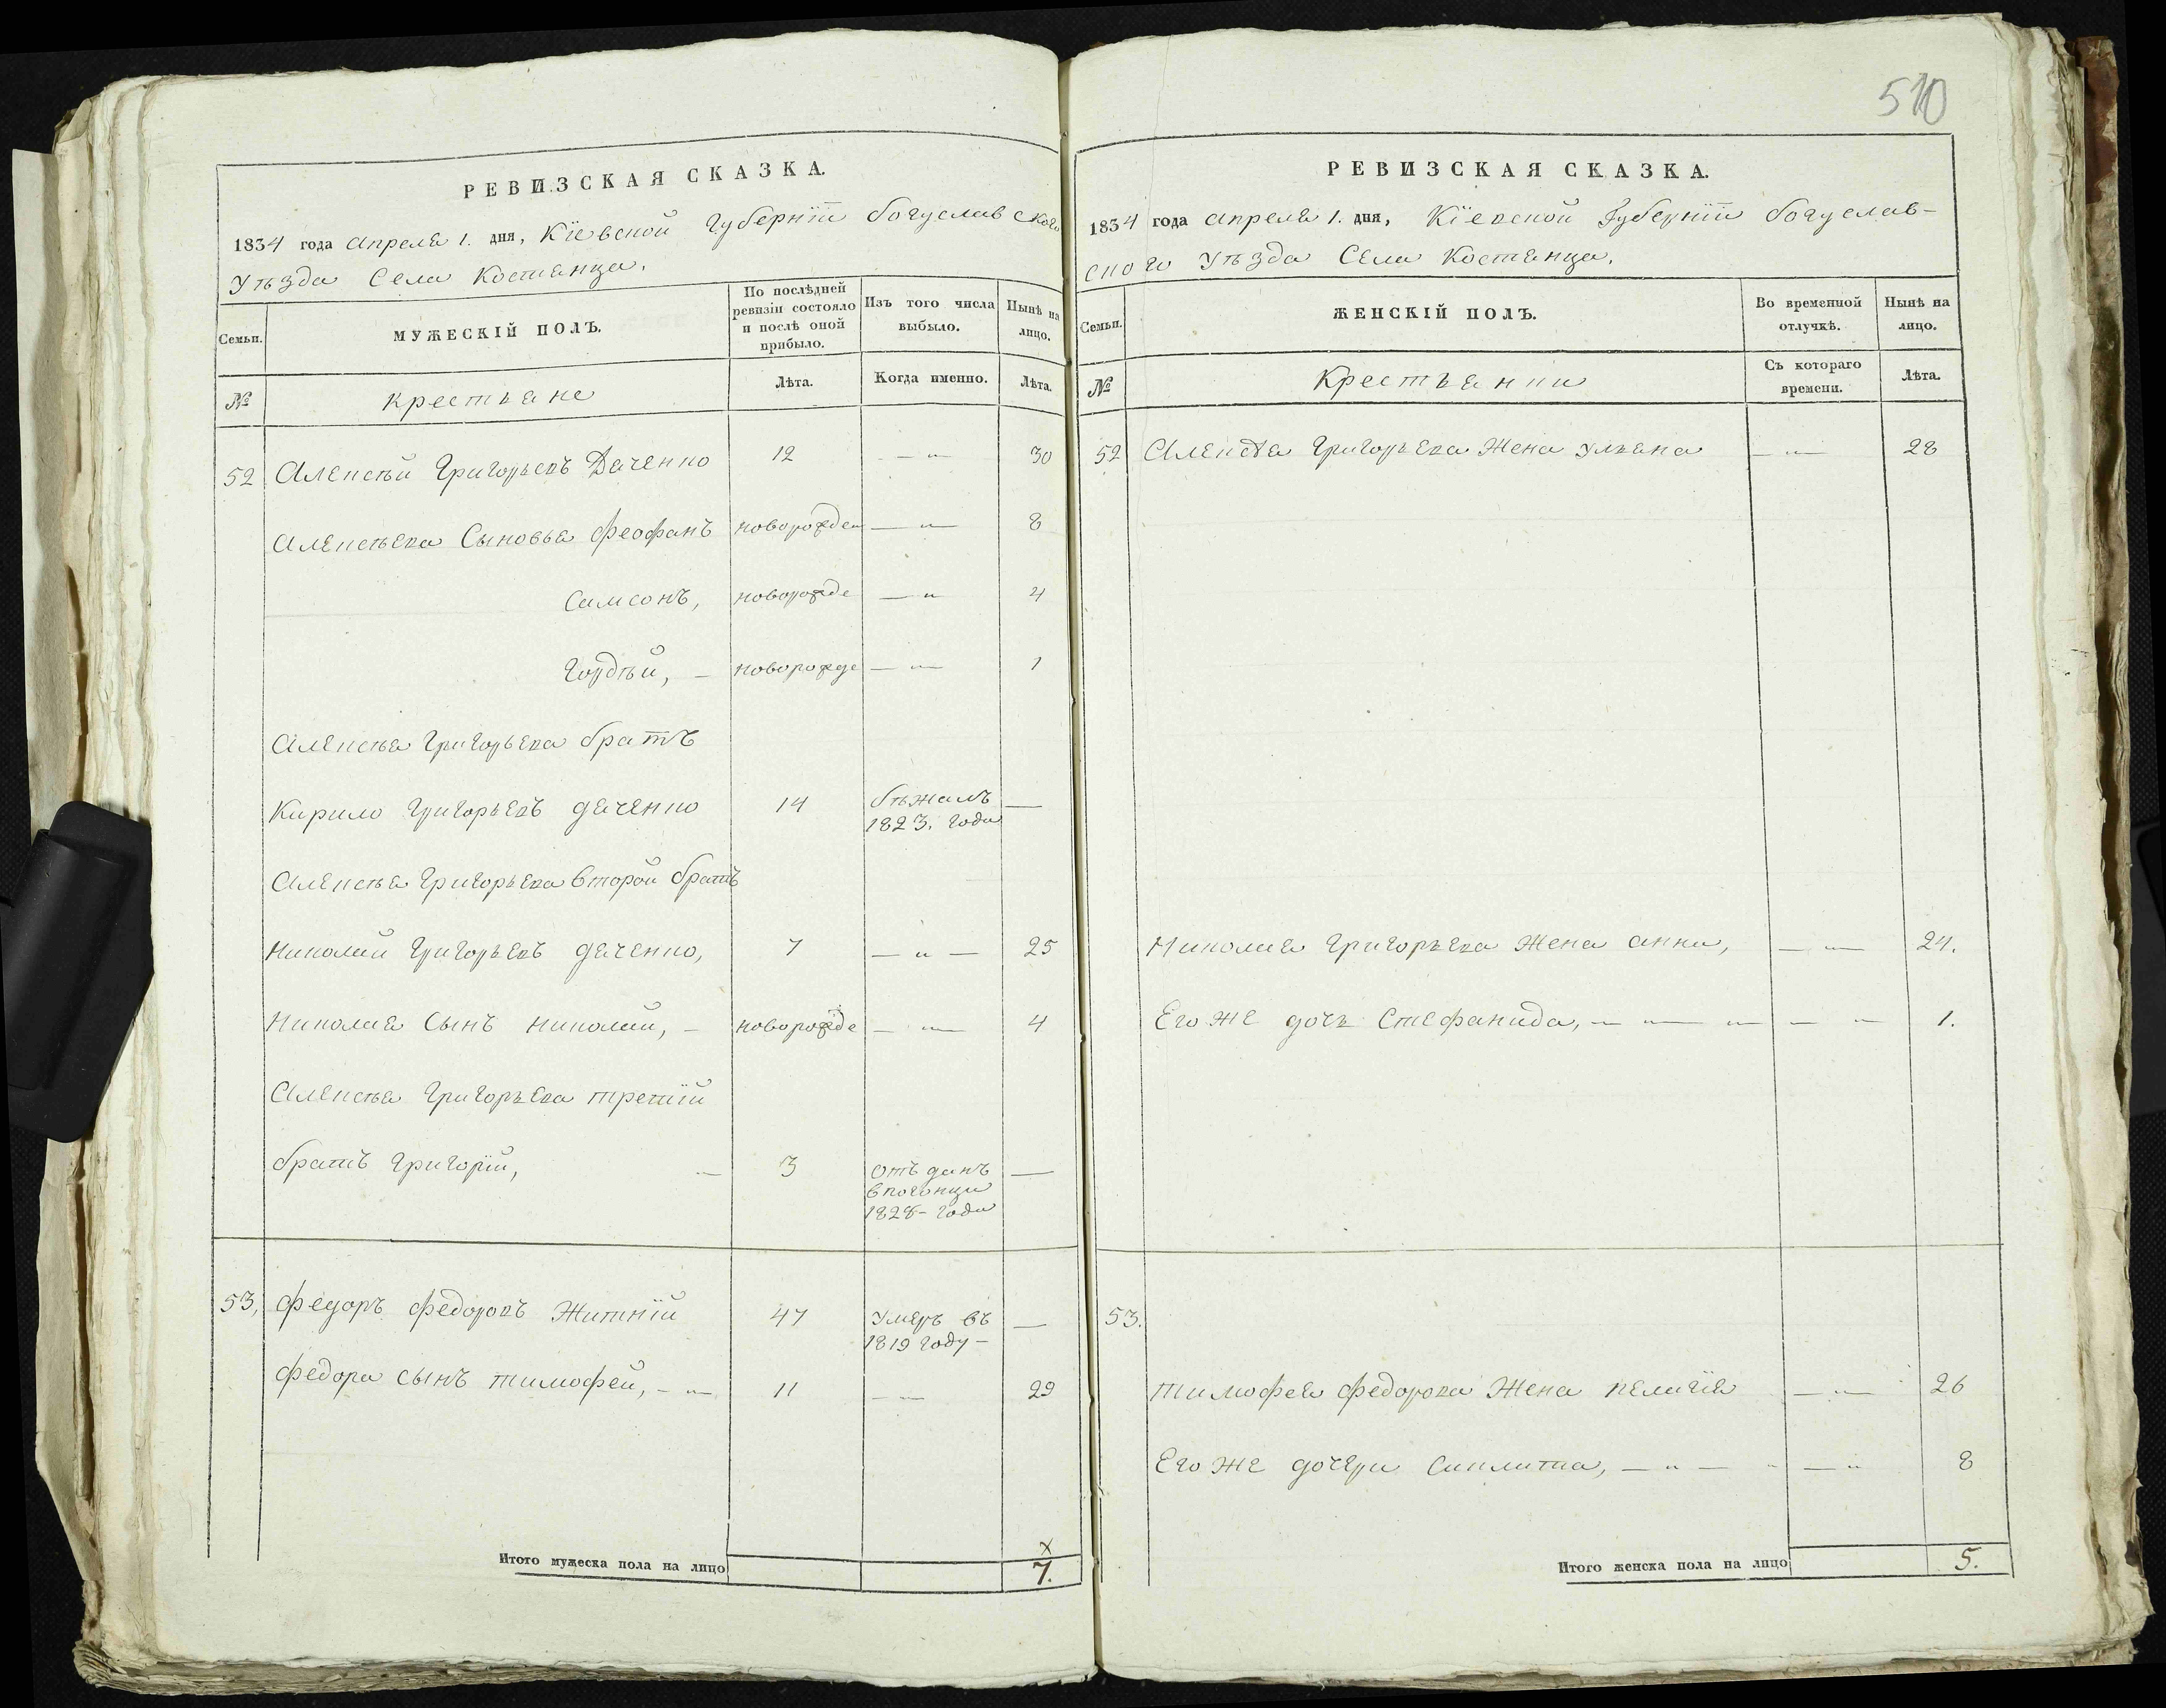 510
РЕВИЗСКАЯ СКАЗКА.
1834 года апреля 1. дня, Кіевской губерніи богуславского
уѣзда Села Костянца.
Семьи. МУЖЕСКІЙ ПОЛЪ. По послѣдней ревизіи состояло и послѣ оной прибыло. Изъ того числа выбыло. Нынѣ на лицо.
№ крестьяне Лѣта. Когда именно. Лѣта.
52 Алексѣй Григорьевъ Даченко 12 — „ — 30
Алексѣева Сыновья Феофанъ новорожден — „ — 8
Самсонъ, новорожде — „ 4
Гордѣй, — новорожде — „ — 1
Алексѣя Григорьева братъ
Кирило Григорьевъ даченко 14 бѣжалъ —
1823. года
Алексѣя Григорьева второй братъ
Николай Григорьевъ даченко, 7 — „ — 25
Николая Сынъ николай, — новорожде — „ — 4
Алексѣя Григорьева третій
братъ Григорій, — 3 отъданъ —
впогонци
1828 – года
53, Федоръ Федоровъ Житній 47 умеръ въ —
1819 году –
Федора сынъ тимофей, – „ — 11 — „ — 29
Итого мужеска пола на лицо 7.
РЕВИЗСКАЯ СКАЗКА.
1834 года апреля 1. дня, Кіевской Губерніи богуслав-
ского уѣзда Села Костянца.
Семьи. ЖЕНСКІЙ ПОЛЪ. Во временной отлучкѣ. Нынѣ на лицо.
№ Крестьянки Съ котораго времени. Лѣта.
52 Алексѣя Григорьева Жена ульяна — „ — 28
Николая Григорьева Жена анна, — „ — 24.
Его же дочь Стефанида, — „ — „ — 1.
53.
тимофея Федорова Жена пелагія — „ — 26
Его же дочери Синлитка, — „ — „ — „ 8
Итого женска пола на лицо 5.